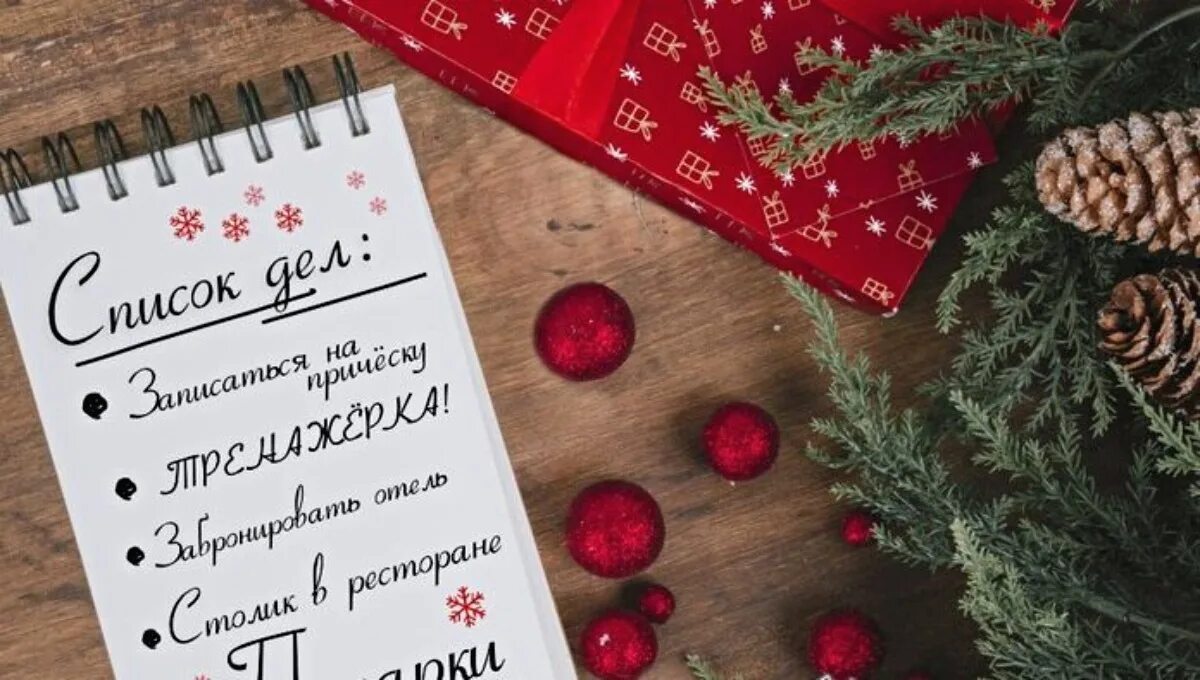 Список дел:
Записаться на
причёску
ТРЕНАЖЁРКА!
Забронировать отель
Столик в ресторане